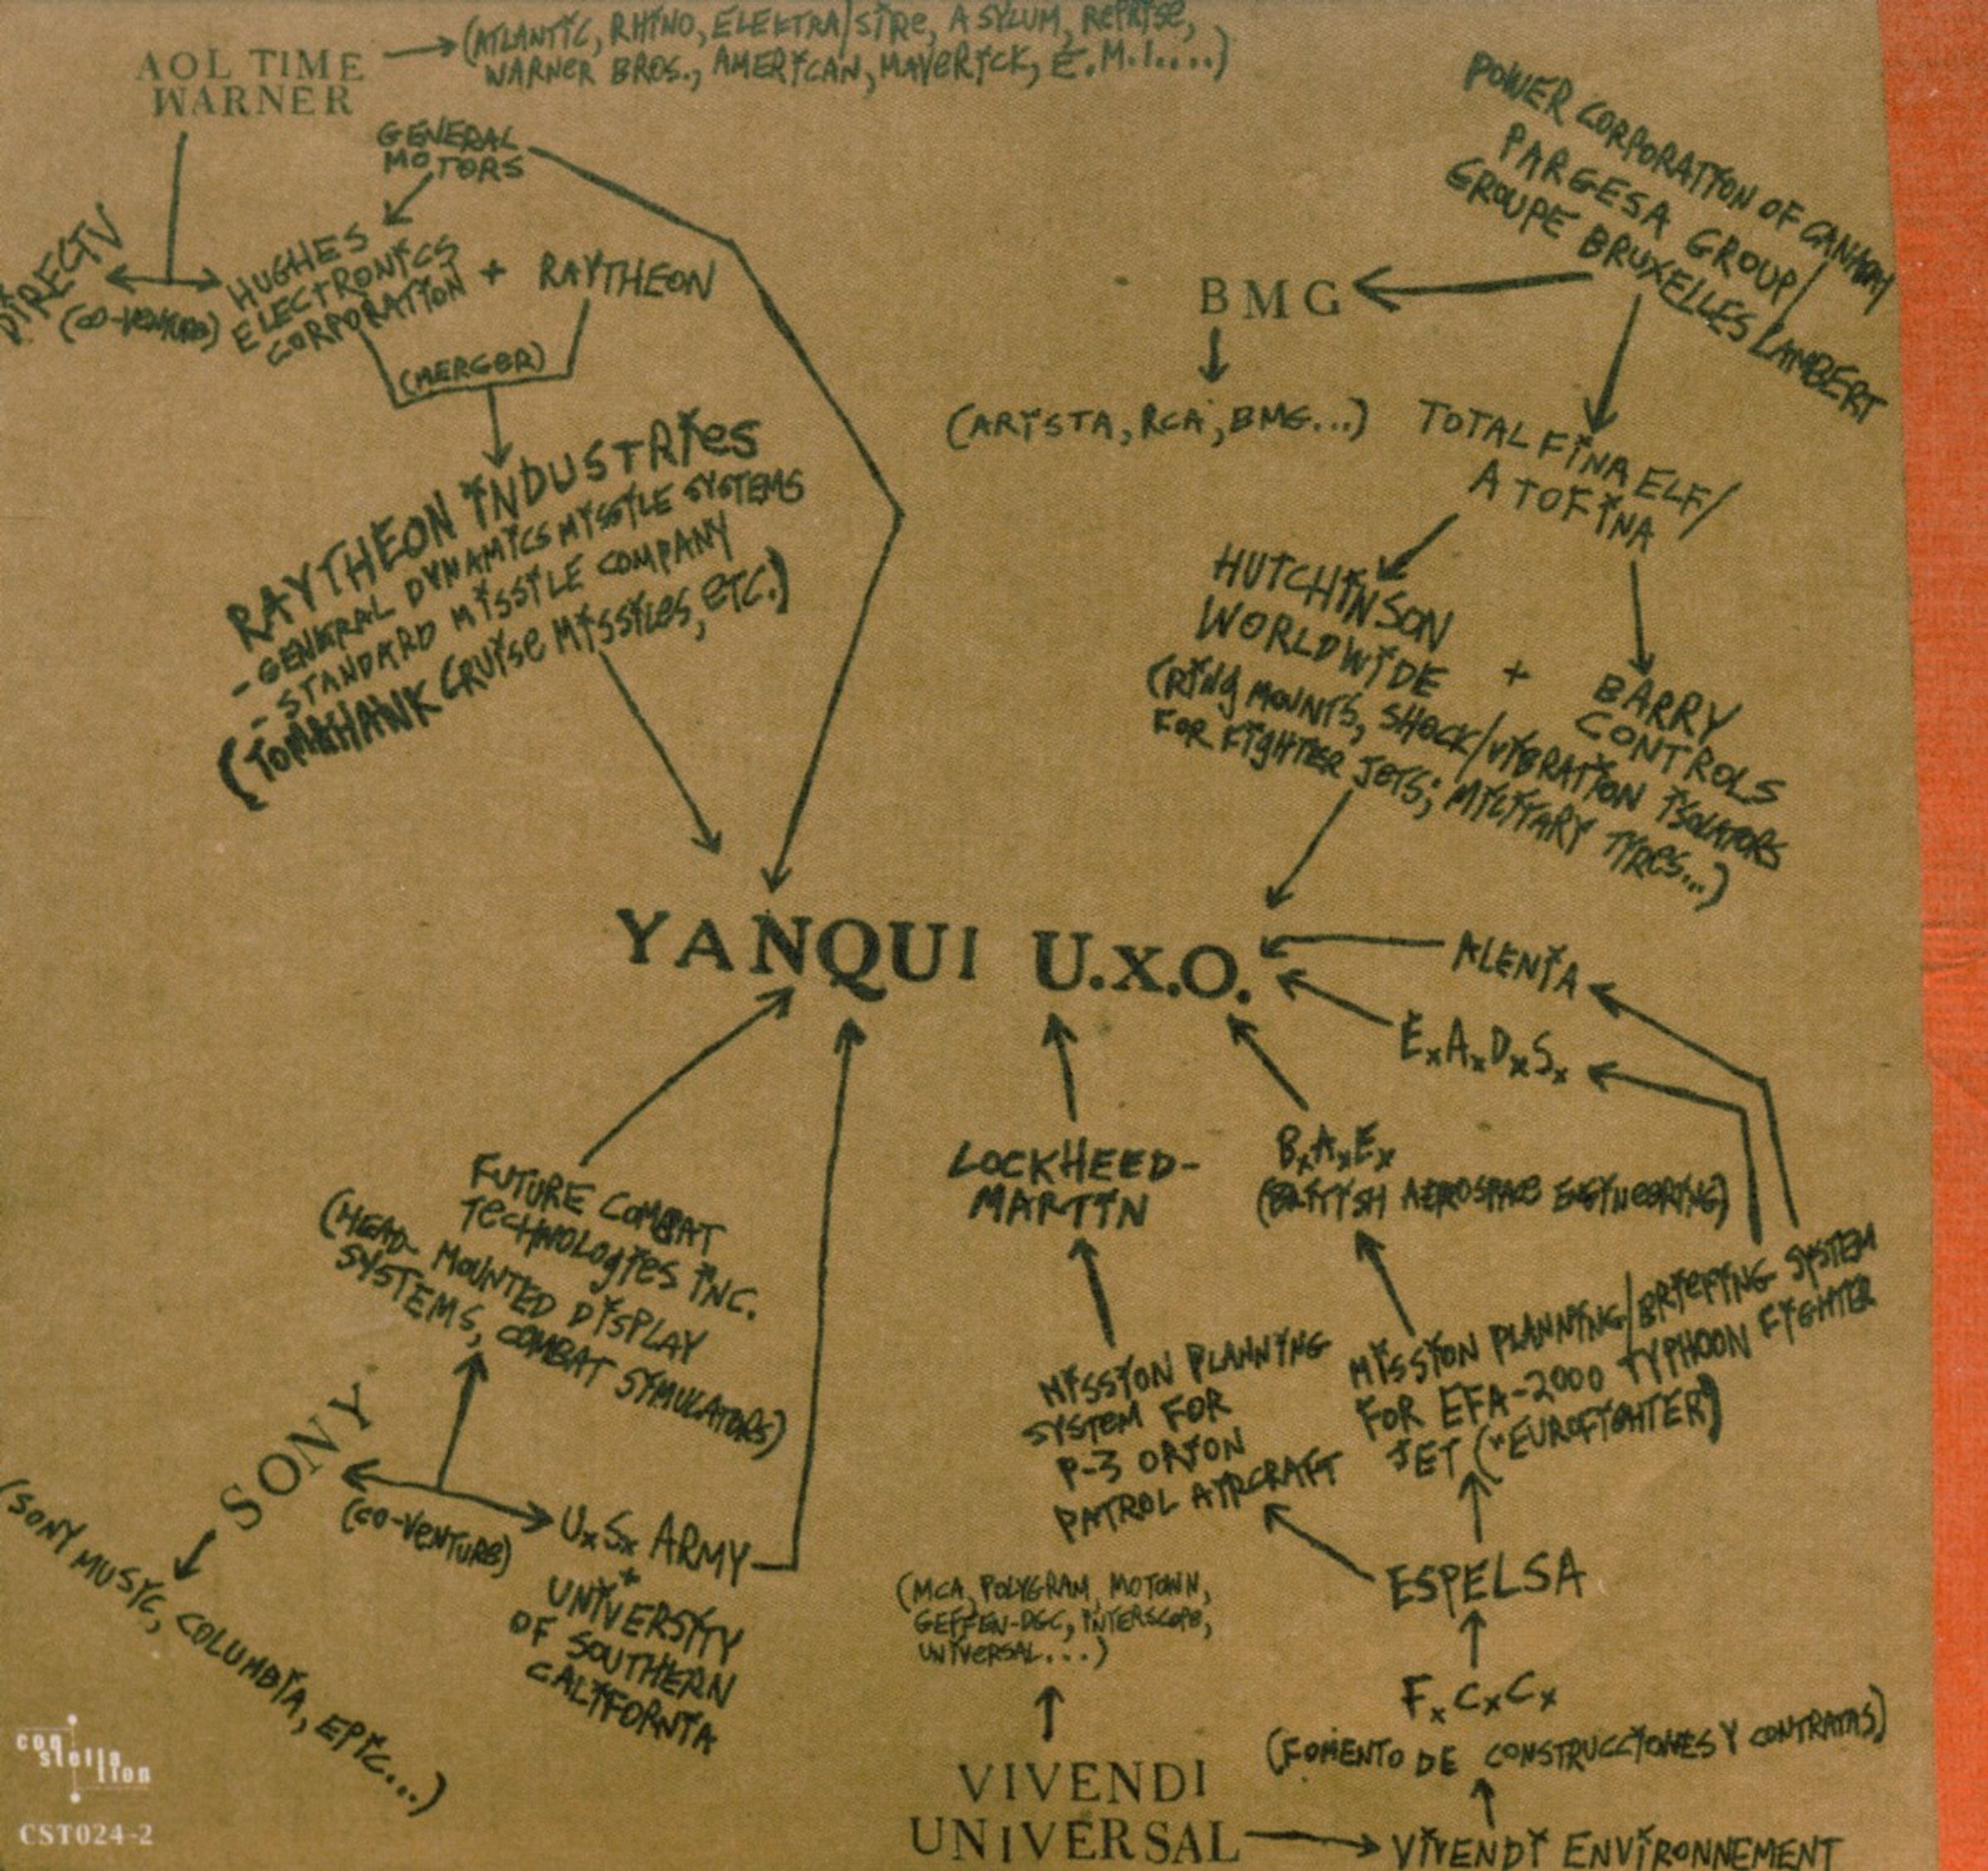 AOL TIME
WARNER
(ATLANTIC, RHINO, ELEKTRA/SIRE, ASYLUM, REPRISE,
WARNER BROS., AMERICAN, MAVERICK, E.M.I.....)
GENERAL
MOTORS
DIRECTV
(CO-VENTURE)
HUGHES
ELECTRONICS
CORPORATION
+
RAYTHEON
(MERGER)
RAYTHEON INDUSTRIES
- GENERAL DYNAMICS MISSILE SYSTEMS
- STANDARD MISSILE COMPANY
(TOMAHAWK CRUISE MISSILES, ETC.)
POWER CORPORATION OF CANADA/
PARGESA GROUP/
GROUPE BRUXELLES LAMBERT
BMG
(ARISTA, RCA, BMG...)
TOTAL FINA ELF/
ATOFINA
HUTCHINSON
WORLDWIDE
+
BARRY
CONTROLS
(RING MOUNTS, SHOCK/VIBRATION ISOLATORS
FOR FIGHTER JETS; MILITARY TYRES...)
YANQUI U.X.O.
ALENIA
ExAxDxSx
BxAxEx
(BRITISH AEROSPACE ENGINEERING)
LOCKHEED-
MARTIN
FUTURE COMBAT
TECHNOLOGIES INC.
(HEAD-MOUNTED DISPLAY
SYSTEMS, COMBAT SIMULATORS)
MISSION PLANNING
SYSTEM FOR
P-3 ORION
PATROL AIRCRAFT
MISSION PLANNING/BRIEFING SYSTEM
FOR EFA-2000 TYPHOON FIGHTER
JET ("EUROFIGHTER")
SONY
(CO-VENTURE)
(SONY MUSIC, COLUMBIA, EPIC...)
UxSx ARMY
+
UNIVERSITY
OF SOUTHERN
CALIFORNIA
ESPELSA
(MCA, POLYGRAM, MOTOWN,
GEFFEN-DGC, INTERSCOPE,
UNIVERSAL...)
FxCxCx
(FOMENTO DE CONSTRUCCIONES Y CONTRATAS)
VIVENDI
UNIVERSAL
VIVENDI ENVIRONNEMENT
constellation
CST024-2